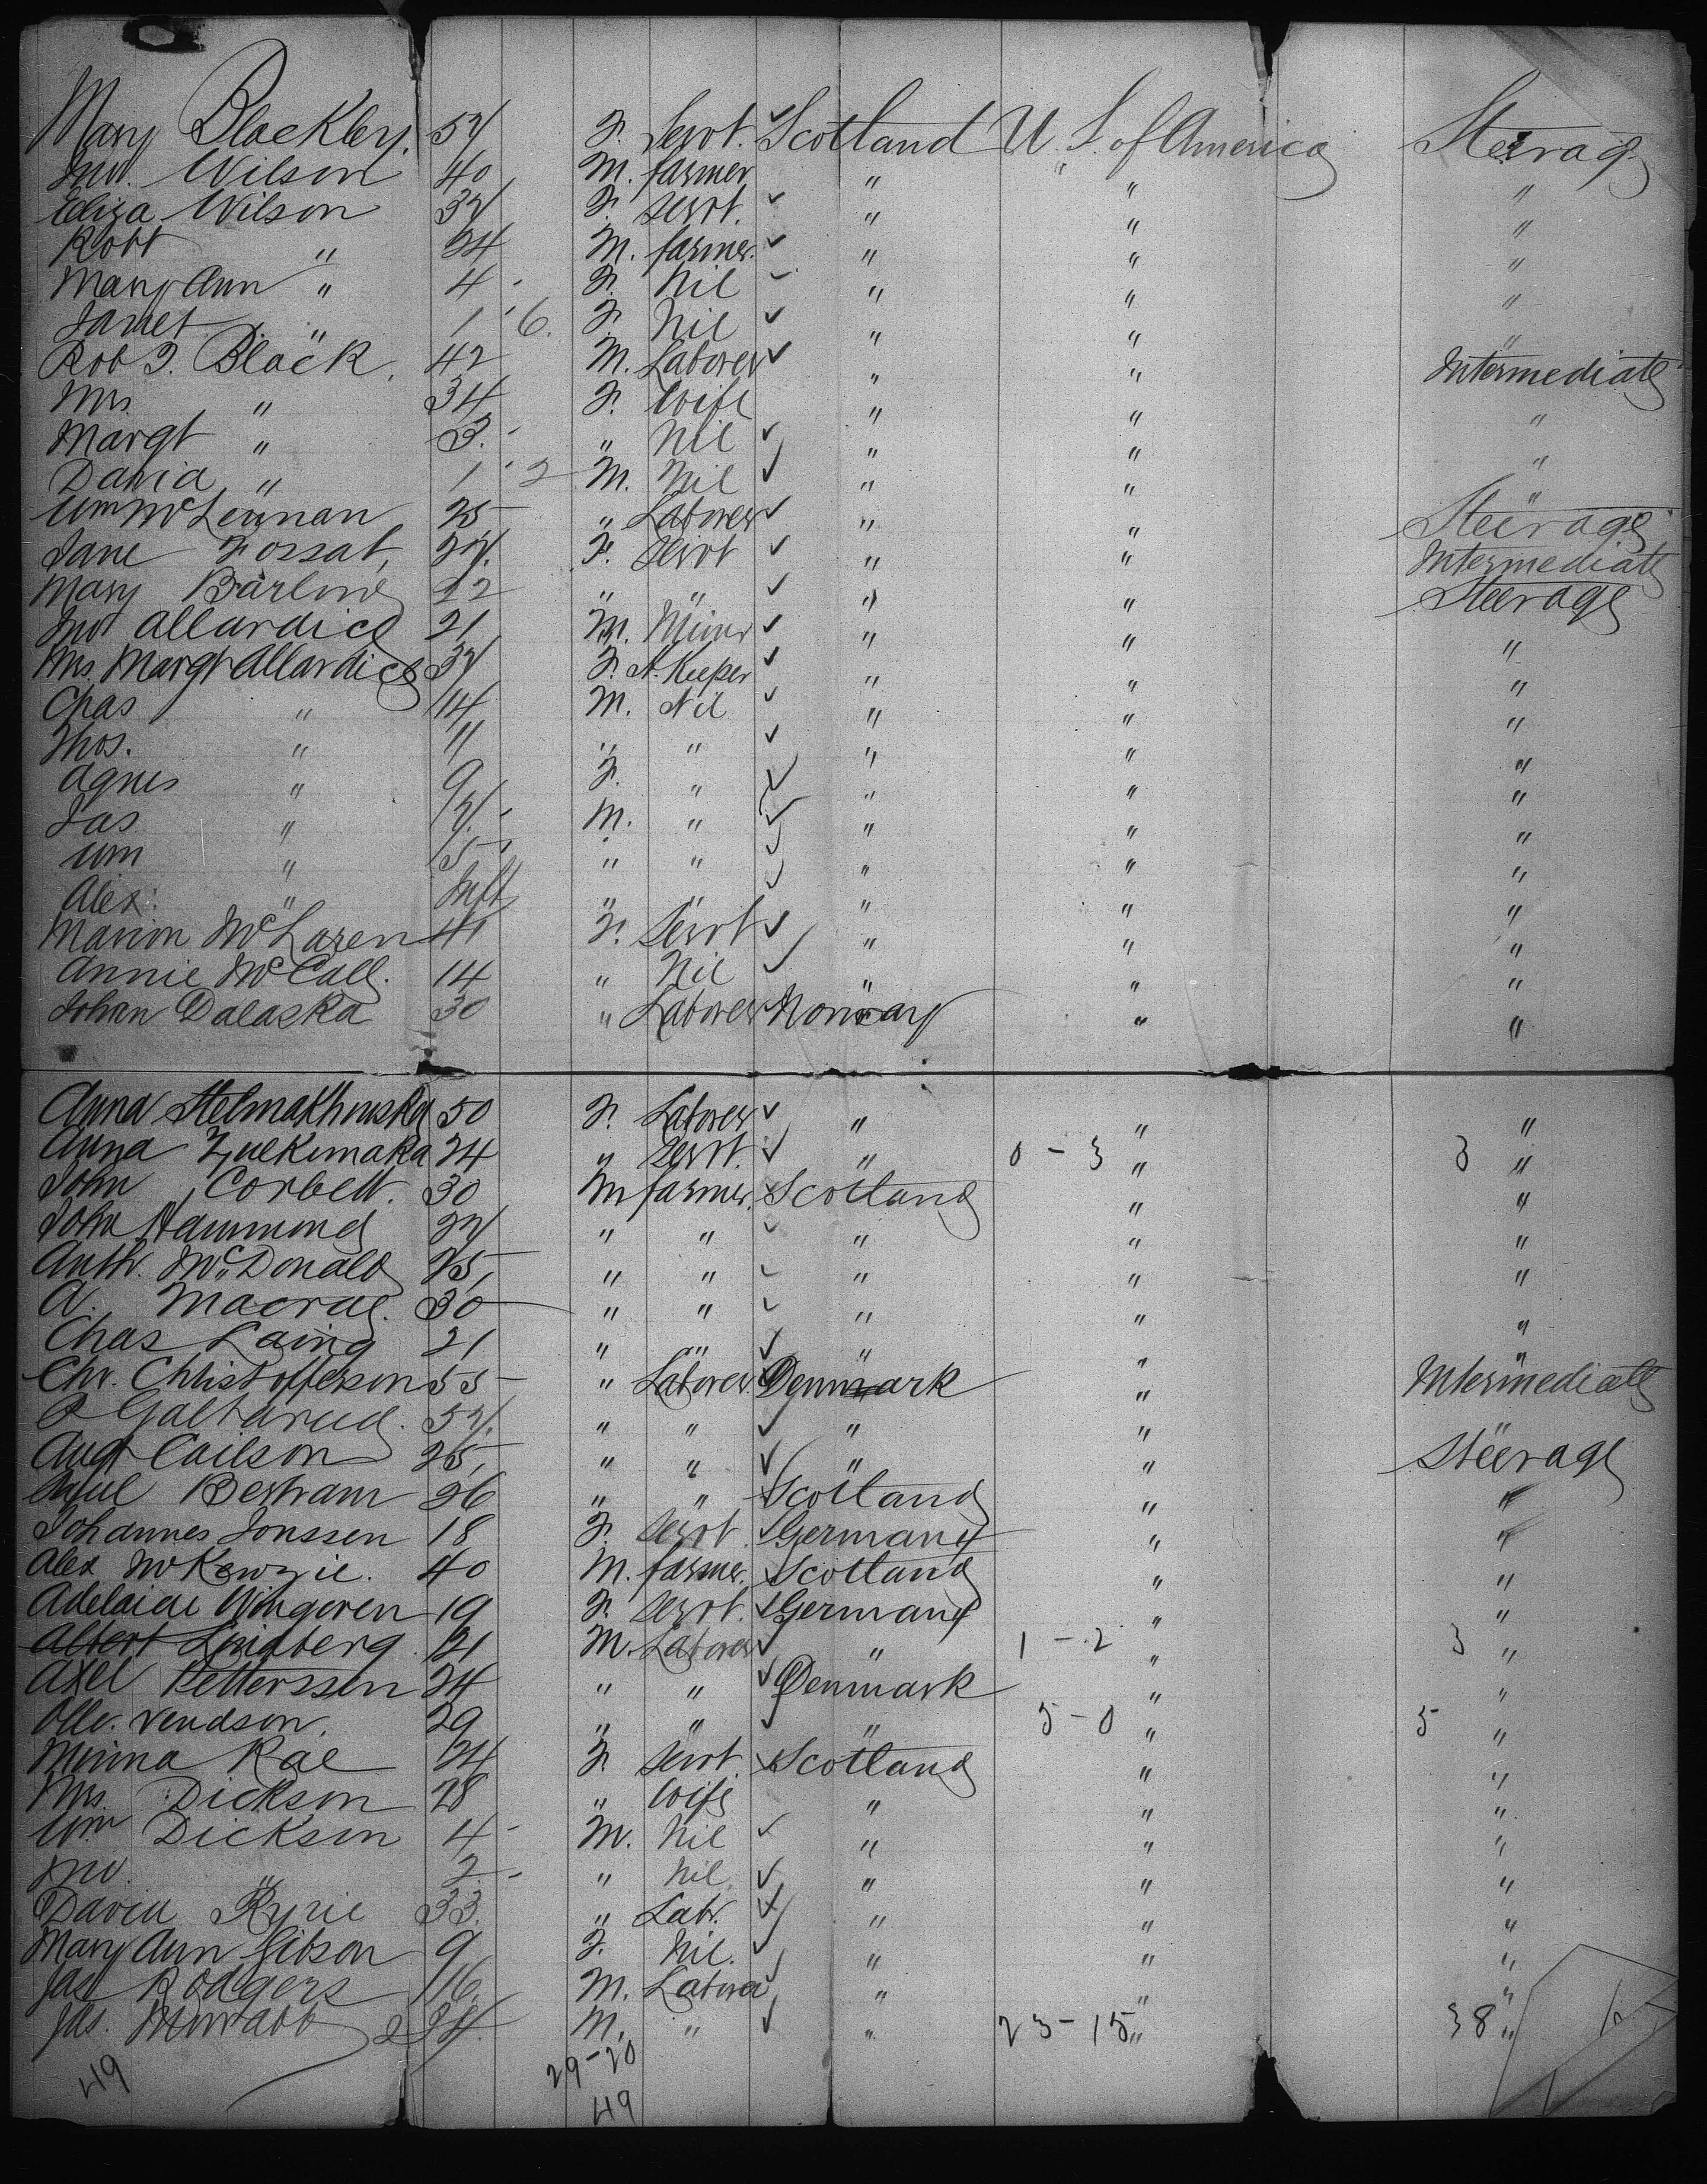 Mary Blackley. 57 F. Servt. Scotland U. S. of America Steerage
Jno. Wilson 40 M. farmer " " "
Eliza Wilson 37 F. servt. " " "
Robt " 24 M. farmer. " " "
Mary Ann " 4 F. Nil " " "
Janet " 1 6. F. Nil " " "
Rob T. Black, 42 M. Laborer " " Intermediate
Mrs " 34 F. Wife " " "
Margt " 3. " Nil " " "
David " 1 2 M. Nil " " "
Wm McLennan 25 " Laborer " " Steerage
Jane Fossat, 27. F. Servt " " Intermediate
Mary 22 " " " " Steerage
Jno Allardice 21 M. Miner " " "
Mrs. Margt Allardice 37 F. H. Keeper " " "
Chas " 14 M. Nil " " "
Thos. " 11 " " " " "
Agnes " 9 F. " " " "
Jas " 7. M. " " " "
Wm " 5 " " " " "
Alex: " Inft " " " " "
Marion McLaren 41 F. Servt " " "
Annie McCall. 14 " Nil " " "
Johan Dalaska 30 " Laborer Norway " "
Anna 50 F. Laborer " " "
Anna 24 " Servt. " 0 - 3 " 3 "
John Corbett. 30 M farmer. Scotland " "
John Hammond 27 " " " " "
Anth. McDonald 25, " " " " "
A. Macrae. 30 " " " " "
Chas Laing 21 " " " " "
Chr. Christofferson 55 " Laborer Denmark " Intermediate
57. " " " "
Aug Carlson 25, " " " " Steerage
Bertram 26 " " Scotland " "
Johannes Jonssen 18 F. Servt. Germany " "
Alex McKenzie. 40 M. farmer. Scotland " "
Adelaide Wingoren 19 F. Servt. Germany " "
Albert Lindberg 21 M. Laborer " 1 - 2 " 3 "
Axel Petterssen 24 " " Denmark " "
Olle. Vendson. 29 " " " 5 - 0 " 5 "
Minna Rae 24 F. Servt. Scotland " "
Mrs. Dickson 28 " Wife " " "
Wm Dickson 4 M. Nil " " "
Jno. " 2 " Nil. " " "
David Ryrie 33. " Labr. " " "
Mary Ann Gibson 9 F. Nil. " " "
Jas Rodgers 16. M. Laborer " " "
Jas. 24. M. " " 23 - 15 " 38 "
49 29-20
49